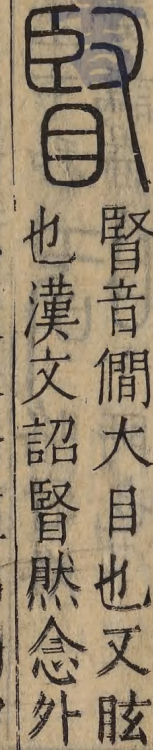 䝨
䝨音僩大目也又眩
也漢文詔䝨然念外